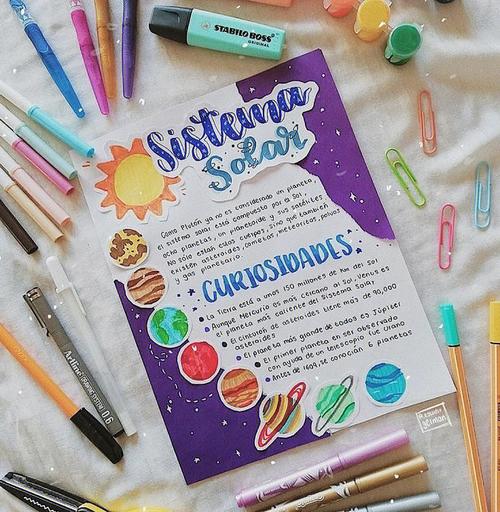 STABILO BOSS
ORIGINAL
Sistema
Solar
Como Plutón ya no es considerado un planeta,
el sistema solar está compuesto por el Sol,
ocho planetas, un planetoide y sus satélites.
No sólo están estos cuerpos, sino que también
existen asteroides, cometas, meteoritos, polvo
y gas planetario.
CURIOSIDADES
La Tierra está a unos 150 millones de Km del Sol
Aunque Mercurio es más cercano al Sol, Venus es
el planeta más caliente del Sistema Solar
El cinturón de asteroides tiene más de 90,000
asteroides
El planeta más grande de todos es Júpiter
El primer planeta en ser observado
con ayuda de un telescopio fue Urano
Antes de 1609, se conocían 6 planetas
Artline
0.6